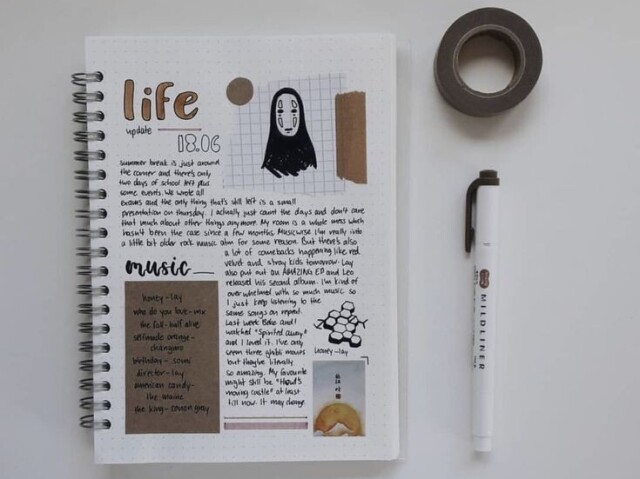 life
update
18.06
summer break is just around
the corner and there's only
two days of school left plus
some events. We wrote all
exams and the only thing that's still left is a small
presentation on thursday. I actually just count the days and don't care
that much about other things anymore. My room is a whole mess which
hasn't been the case since a few months. Musicwise I'm really into
a little bit older rock music atm for some reason. But there's also
a lot of comebacks happening like red
velvet and stray kids tomorrow. Lay
also put out an AMAZING EP and Leo
released his second album. I'm kind of
over whelmed with so much music so
I just keep listening to the
same songs on repeat.
Last week Bobo and I
watched "Spirited away"
and I loved it. I've only
seen three ghibli movies
but they're literally
so amazing. My favourite
might still be "Howl's
moving castle" at least
till now. It may change
music
honey-lay
who do you love-mx
the fall-half alive
selfmade orange-
changmo
birthday-somi
director-lay
american candy-
the maine
the king-conan gray
Honey-lay
MILDLINER